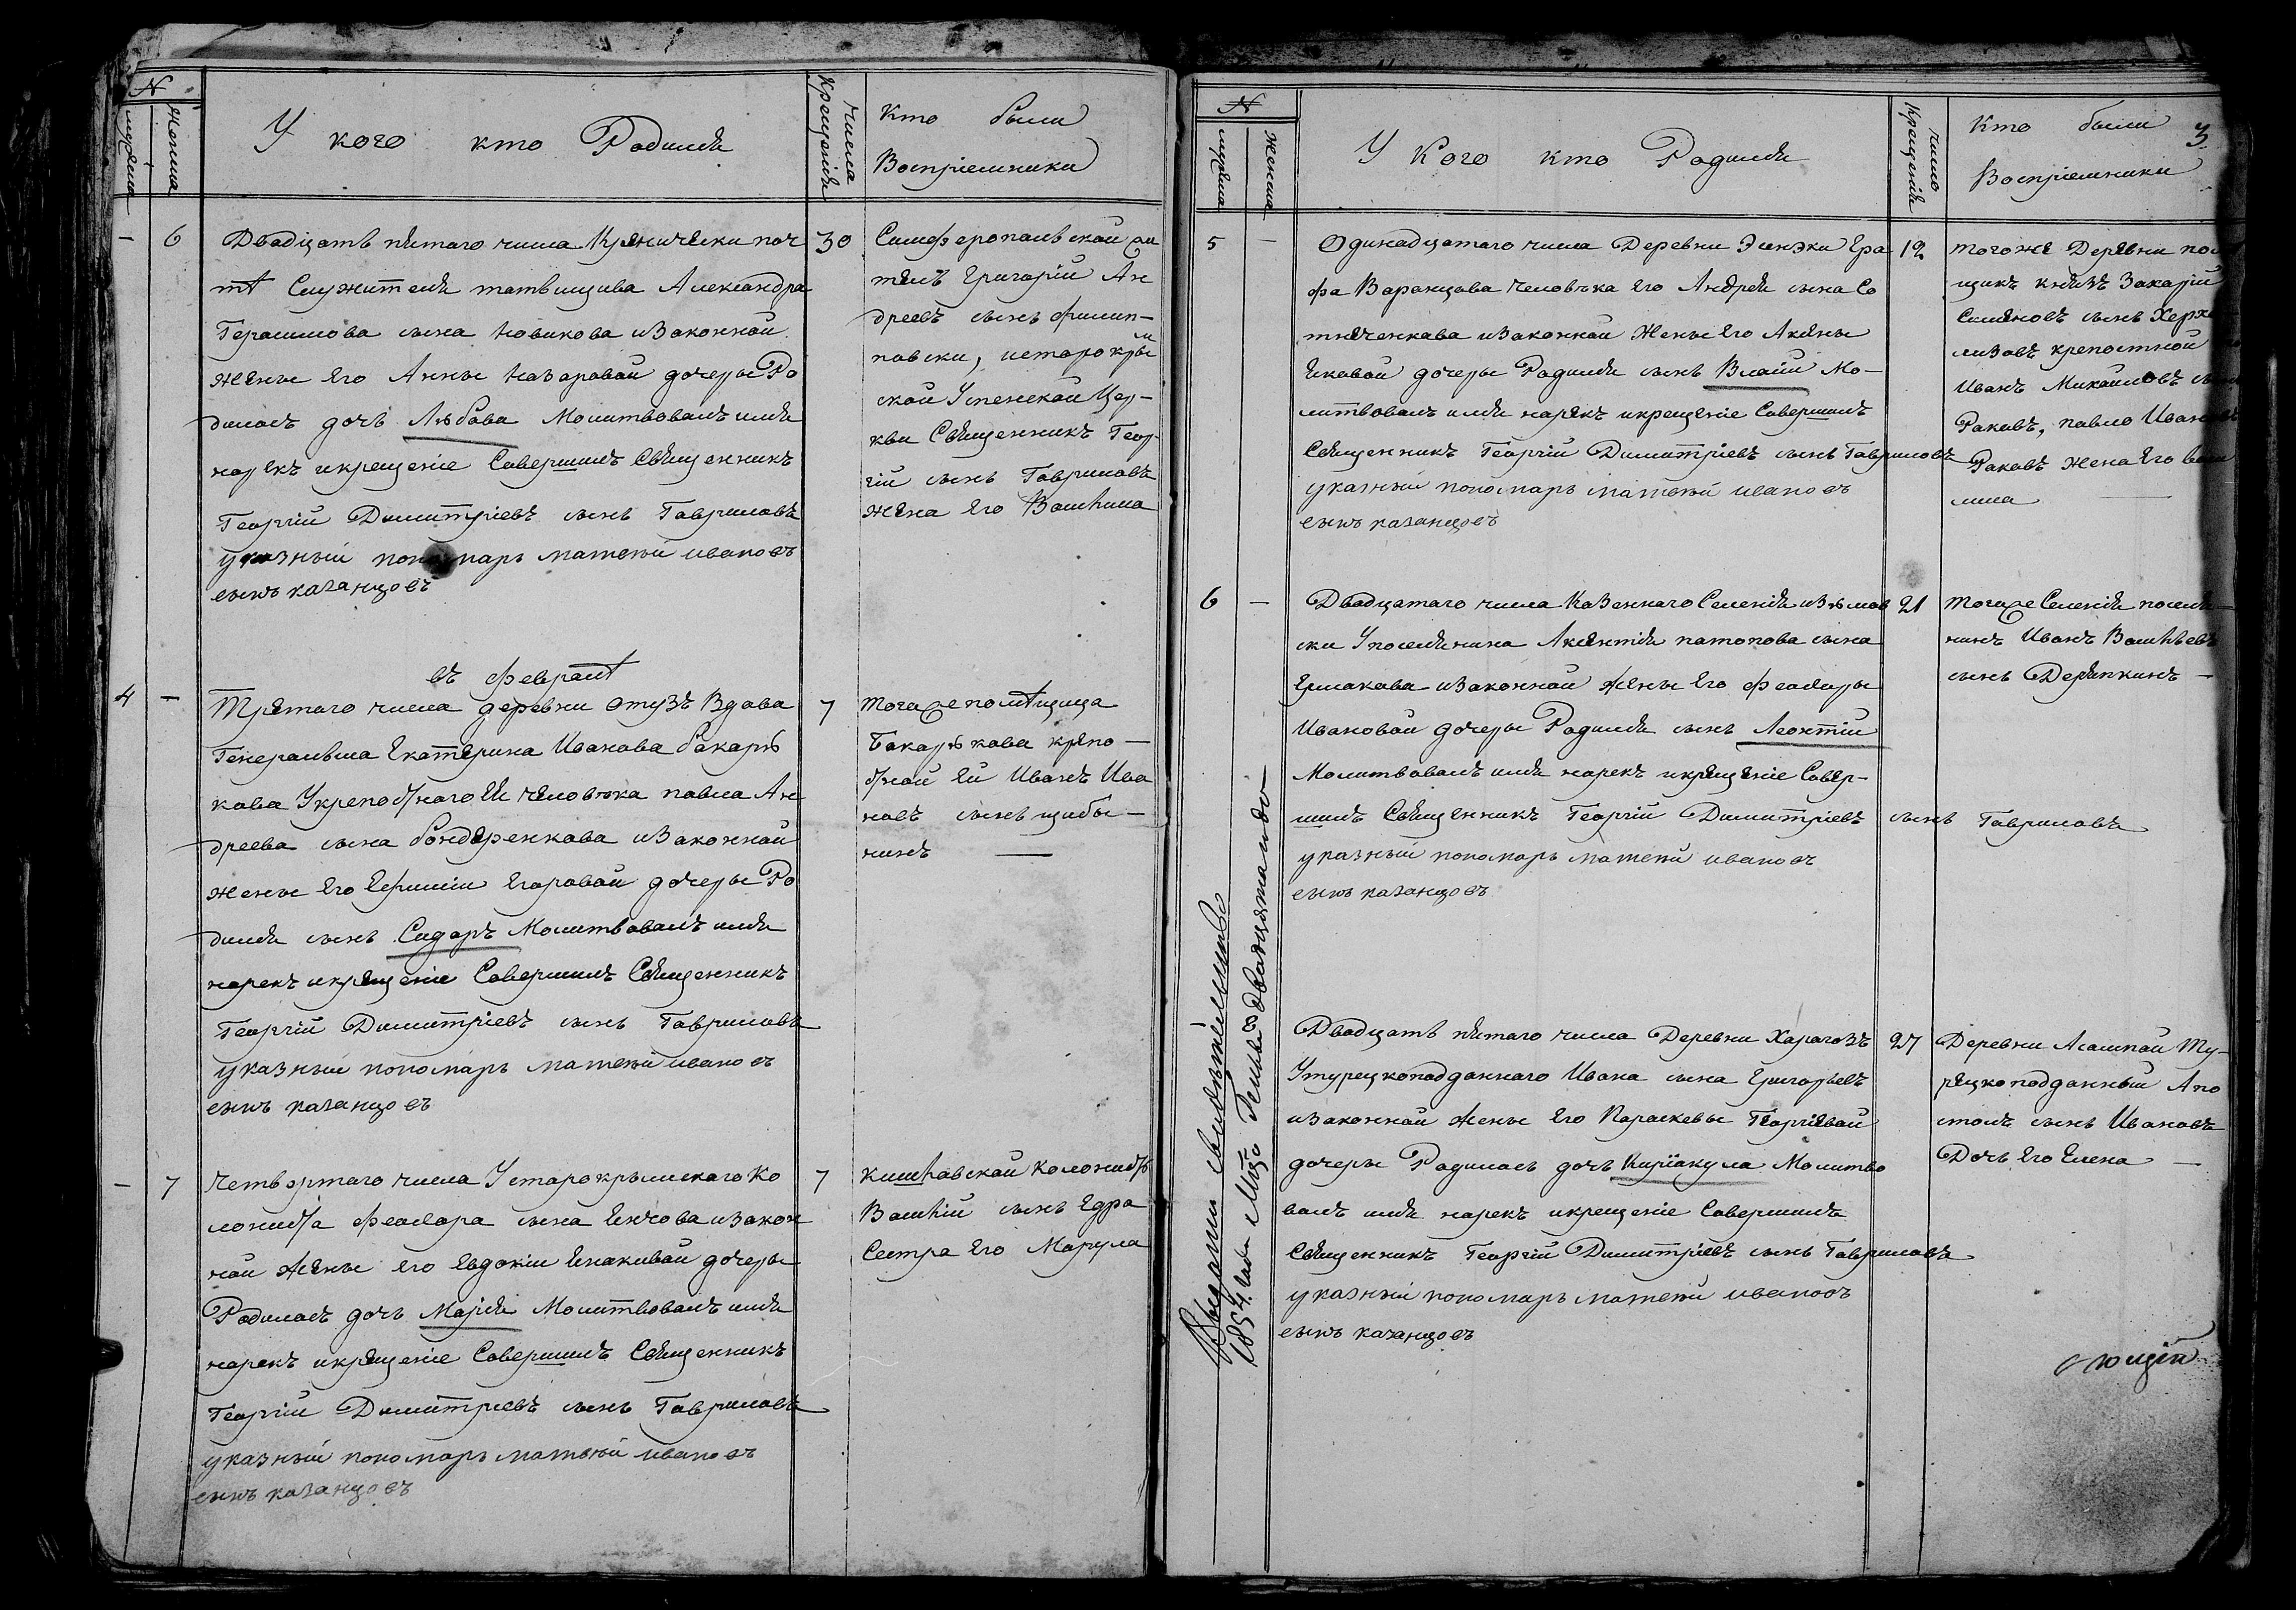 N
мужеска
женска
У кого кто Родился
числа Крещенiя
Кто были
Воспрiемники
– 6 Двадцать пятаго числа
30
Служителя Александра
Герасимова сына Новикова изаконной
жены Его Анны Назаровой дочеры Ро
дилась дочь Любова Молитвовалъ имя
нарекъ икрещенiе Совершилъ Священникъ
Георгiй Димитрiевъ сынъ Гавриловъ
указный пономарь матвей ивановъ
сынъ казанцовъ
Симферопольской
Григорiй Ан
дреевъ сынъ филип–
повски, истарокры
ской Успенской Цер–
кви Священникъ Геор
гiй сынъ Гавриловъ
жена Его Васиһиса
въ февралѣ
4 – Третаго числа деревни отузъ Вдова
7
Генеральша Екатерина Иванова бакарю
кова Укрепостнаго Ей человѣка павла Ан
дреева сына бондаренкова изаконной
жены Его Ефимiи Егоровой дочеры Ро
дился сынъ Сидоръ Молитвовалъ имя
нарекъ икрещенiе Совершилъ Священникъ
Георгiй Димитрiевъ сынъ Гавриловъ
указный пономарь матвей ивановъ
сынъ казанцовъ
тогоже помѣщица
Бакарюкова крепо–
стной Ей Иванъ Ива
новъ сынъ цибы–
нинъ —
– 7 Четвертаго числа Устарокрымскаго Ко
7
лониста феодора сына Енчова изакон
ной жены его Евдокiи дочеры
Родилась дочь Марiя Молитвовалъ имя
нарекъ икрещенiе Совершилъ Священникъ
Георгiй Димитриевъ сынъ Гавриловъ
указный пономарь матвей ивановъ
сынъ казанцовъ
Кишлавской Колонистъ
Василiй сынъ Едра
Сестра Его Марула
N
мужеска
женска
У Кого кто Родился
число Крещенiя
Кто были
Воспрiемники
3
5 – Одинадцатаго числа Деревни Элкэки Гра
12
фа Варанцова человѣка его Андрея сына Со
тниченкава изаконной Жены Его Аксены
дочеры Родился сынъ Власiй Мо–
литвовалъ имя нарекъ икрещенiе Совершилъ
Священникъ Георгiй Димитрiевъ сынъ Гавриловъ
указный пономарь матвей ивановъ
сынъ казанцовъ
тогоже Деревни
князъ Захарiй
Семеновъ сынъ
крепостной
Иванъ Михайловъ
Раковъ, павло
Раковъ жена Его
6 – Двадцатаго числа Казеннаго Селенiя изюмов
21
ки Упоселянина Аксентiя патопова сына
Ермакова изаконной жены Его феодоры
Ивановой дочеры Родился сынъ Леонтiи
Молитвовалъ имя нарекъ икрещенiе Совер–
шилъ Священникъ Георгiй Димитрiевъ сынъ Гавриловъ
указный пономарь матвей ивановъ
сынъ казанцовъ
тогоже Селенiя поселя–
нинъ Иванъ Васильевъ
сынъ Деряпкинъ –
Двадцать пятаго числа Деревни Харагозъ
27
Утурецкоподданнаго Ивана сына Григорьевъ
изаконной жены Его Параскевы Георгiевой
дочеры Родилась дочь Кирiакула Молитво
валъ имя нарекъ икрещенiе Совершилъ
Священникъ Георгiй Димитрiевъ сынъ Гавриловъ
указный пономарь матвей ивановъ
сынъ казанцовъ
Деревни Ту–
рецкоподданный Апо
столъ сынъ Ивановъ
Дочь Его Елена —
Выдано свидѣтельство
1854 Года